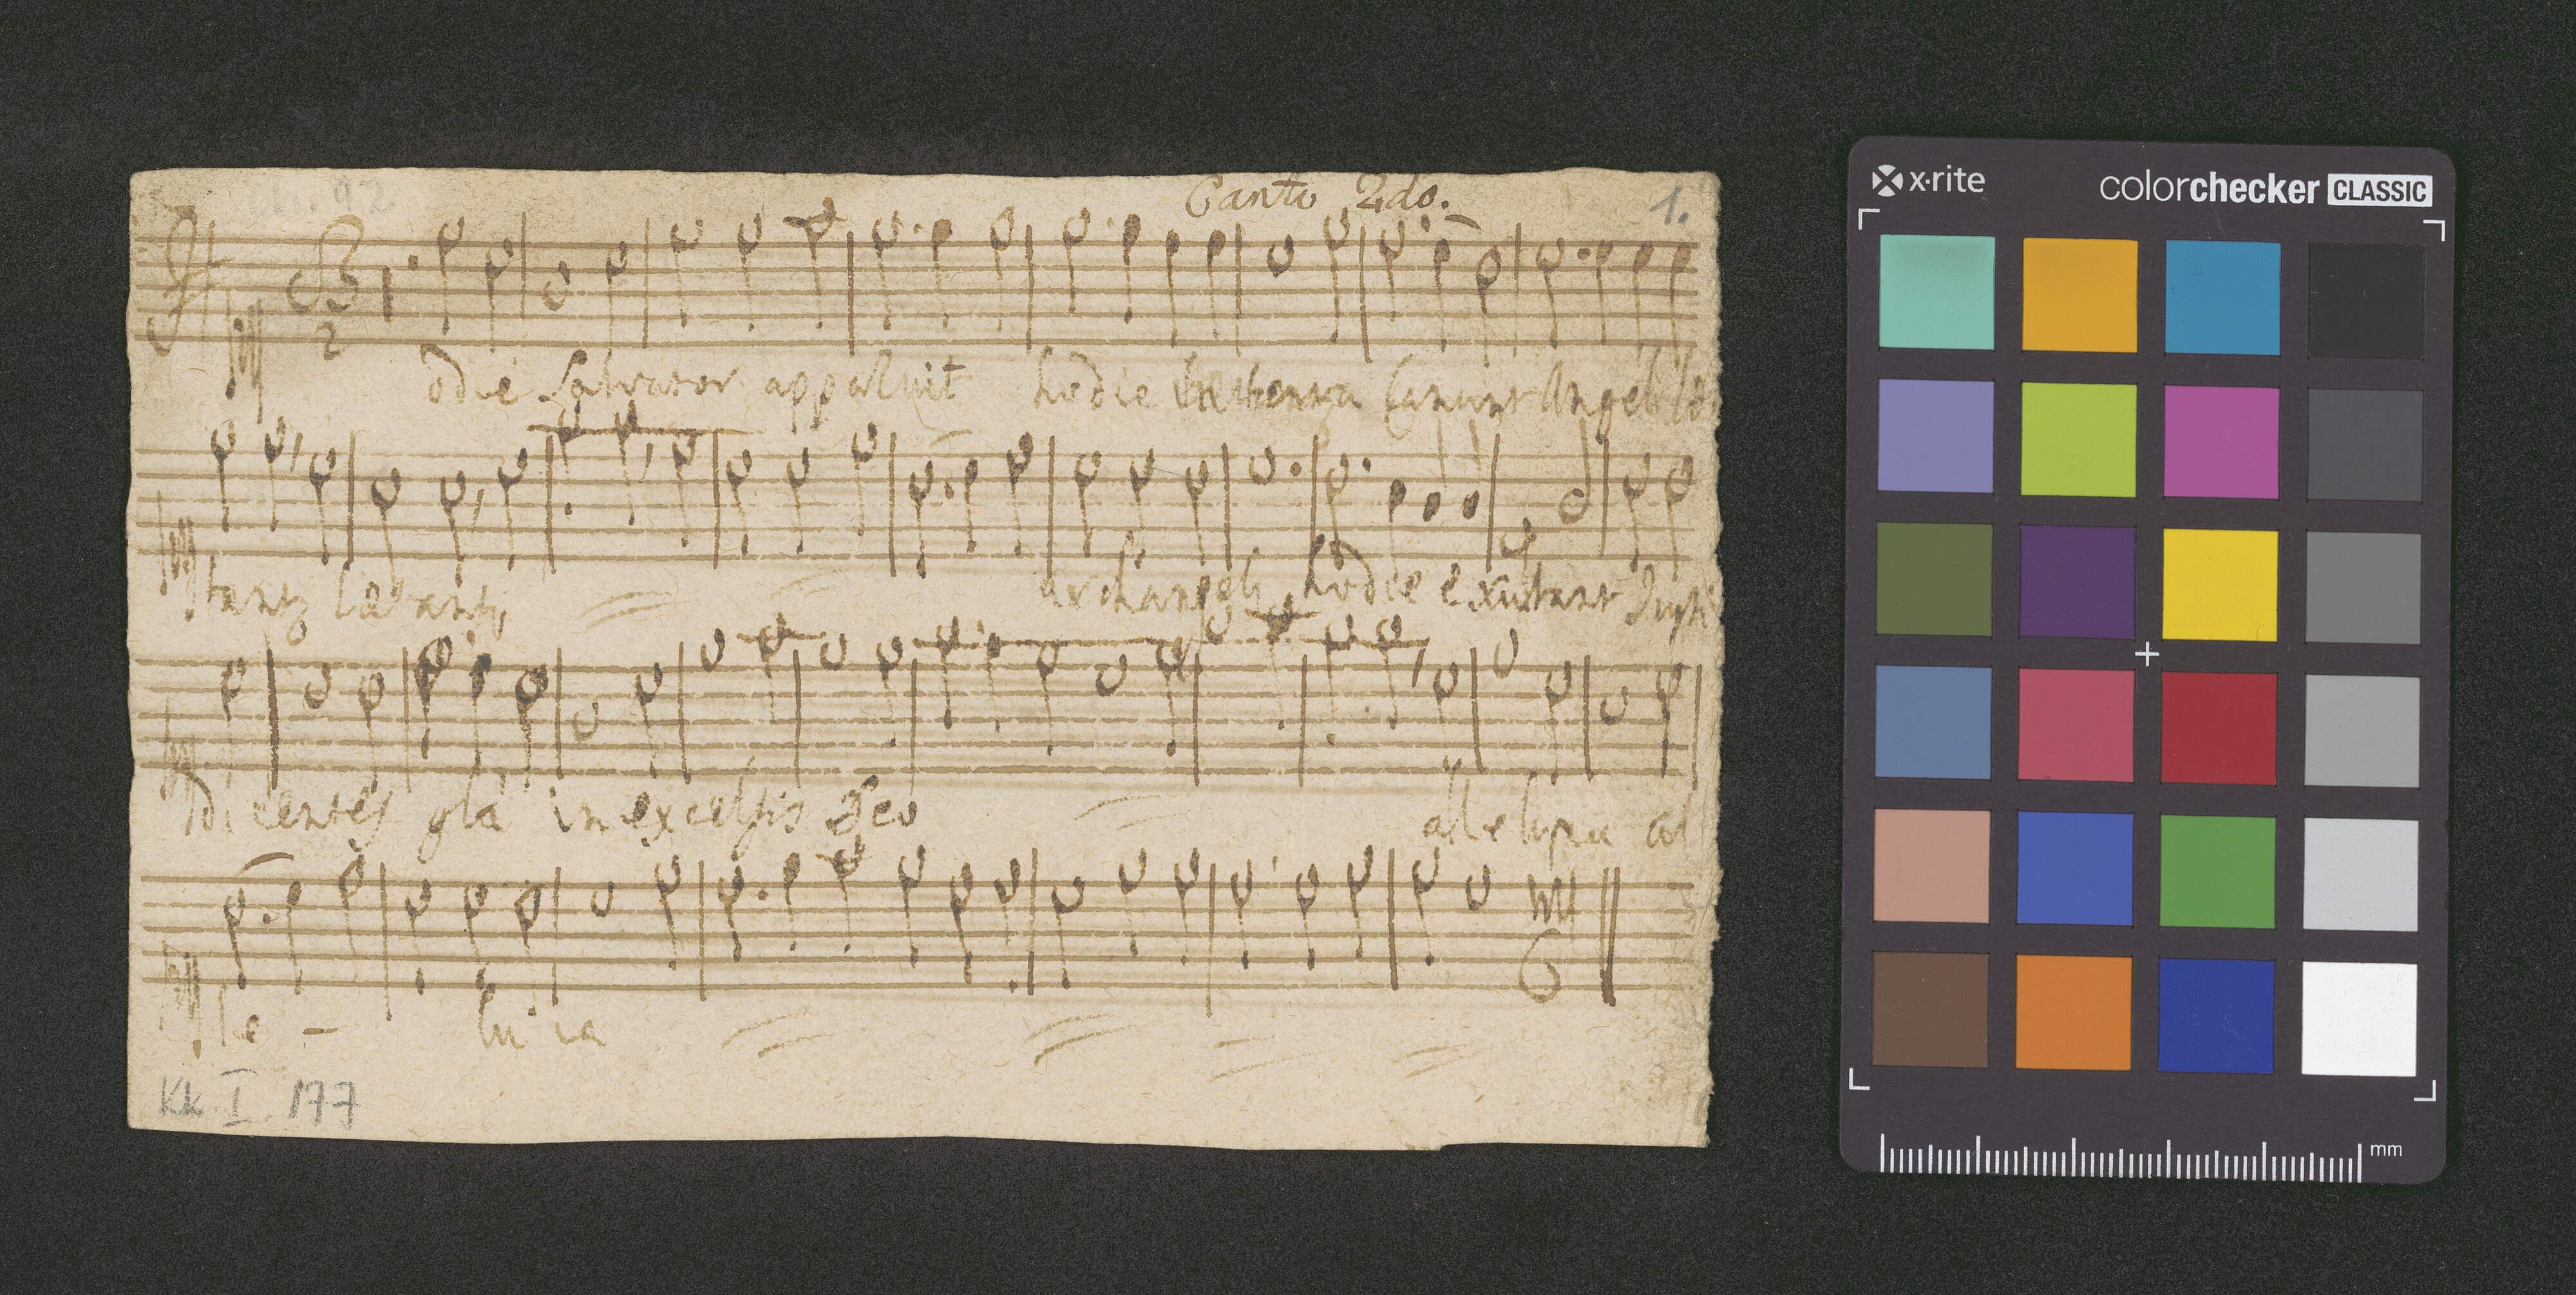 Canto 2do.
1.
3
2
odie Salvator apparuit hodie in terra canunt Angeli læ
tantz lætantz archangeli hodie exultant Justi
dicentes gla in excelsis Deo alleluia al
le - lu ia
Kk I. 177
x·rite
colorchecker CLASSIC
mm